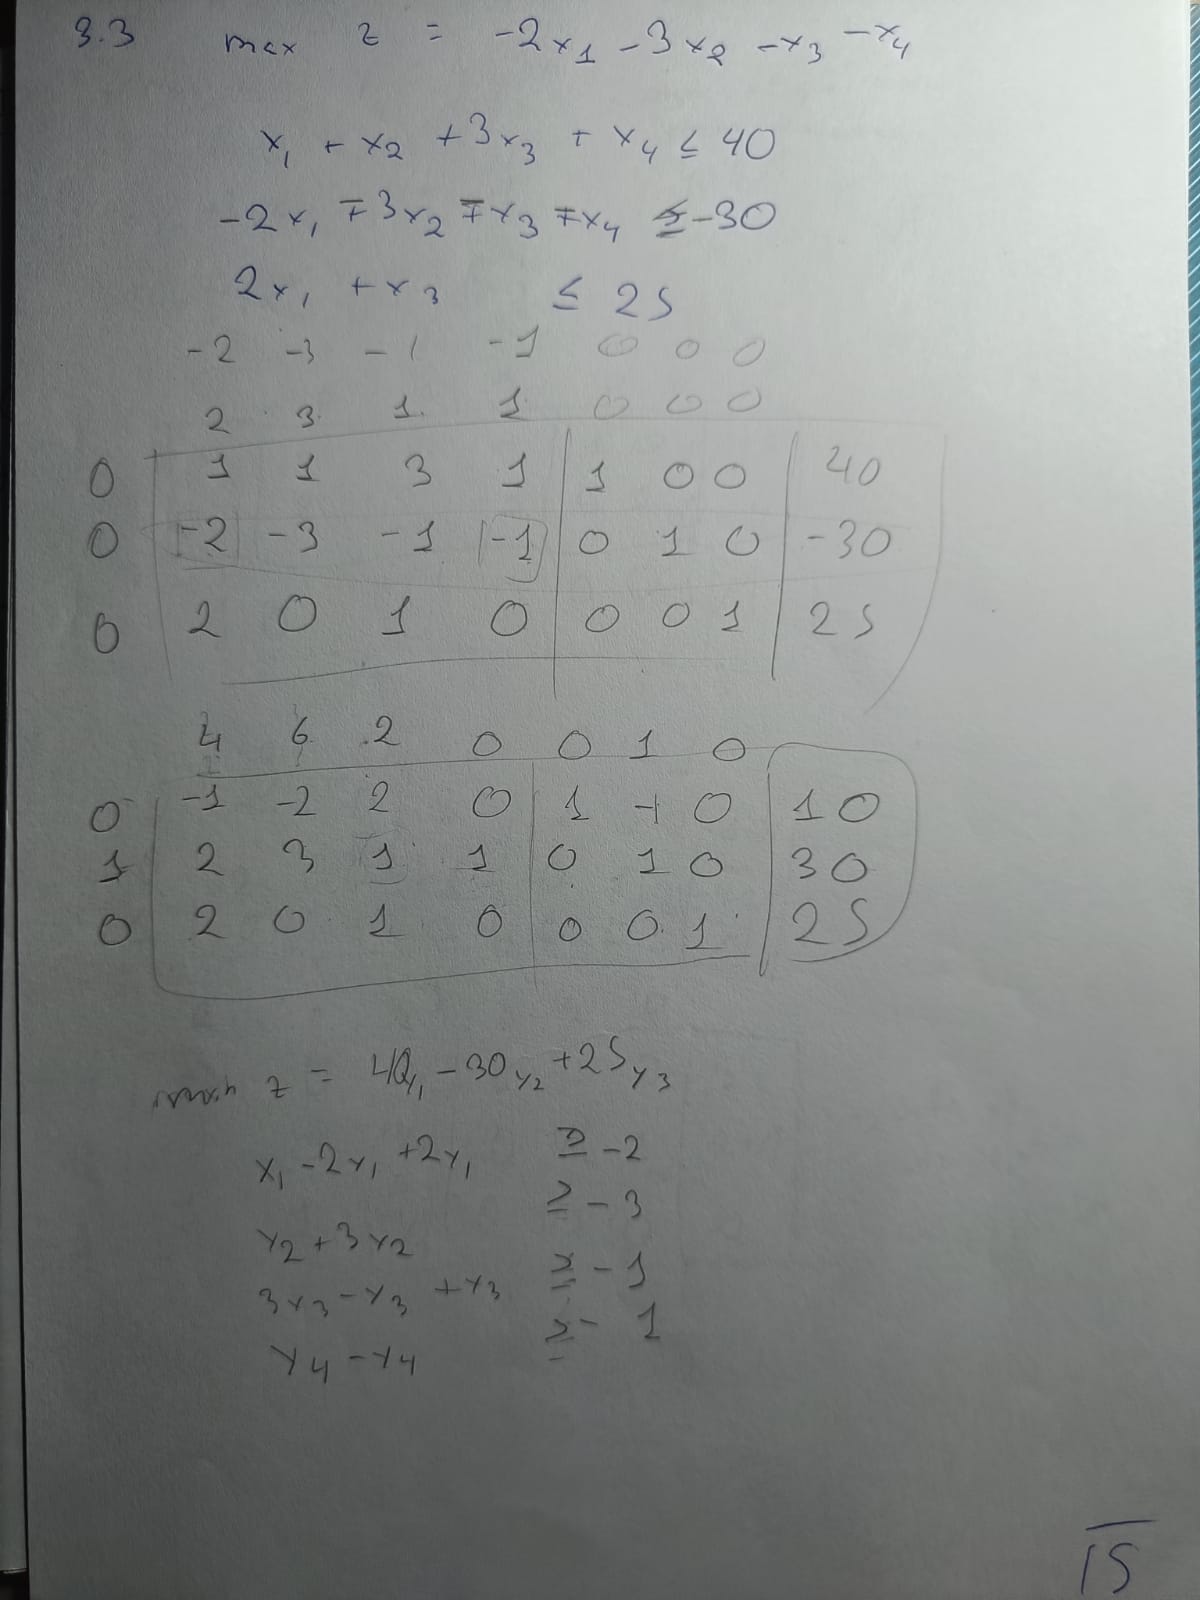 3.3 max z = -2x1 -3x2 -x3 -x4
x1 + x2 +3x3 + x4 ≤ 40
-2x1 ∓3x2 ∓x3 ∓x4 ≤ -30
2x1 + x3 ≤ 25
-2 -3 -1 -1 0 0 0
2 3 1 1 0 0 0
0 1 1 3 1 1 0 0 40
0 -2 -3 -1 -1 0 1 0 -30
0 2 0 1 0 0 0 1 25
4 6 2 0 0 1 0
0 -1 -2 2 0 1 -1 0 10
1 2 3 1 1 0 1 0 30
0 2 0 1 0 0 0 1 25
z = 40y1 -30y2 +25y3
x1 -2x1 +2x1 ≥ -2
≥ -3
x2 +3x2
3x3 -x3 +x3 ≥ -1
x4 -x4 ≥ -1
15